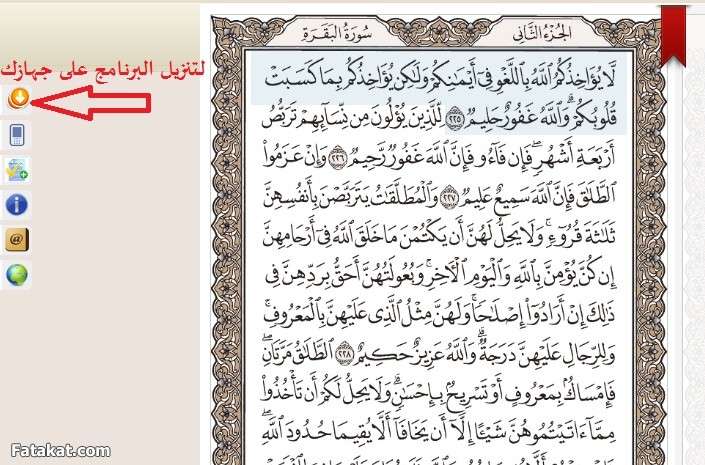 الجزء الثاني
سورة البقرة
لتنزيل البرنامج على جهازك
لَّا يُؤَاخِذُكُمُ ٱللَّهُ بِٱللَّغْوِ فِىٓ أَيْمَٰنِكُمْ وَلَٰكِن يُؤَاخِذُكُم بِمَا كَسَبَتْ
قُلُوبُكُمْ ۗ وَٱللَّهُ غَفُورٌ حَلِيمٌ ٢٢٥ لِّلَّذِينَ يُؤْلُونَ مِن نِّسَآئِهِمْ تَرَبُّصُ
أَرْبَعَةِ أَشْهُرٍ ۖ فَإِن فَآءُو فَإِنَّ ٱللَّهَ غَفُورٌ رَّحِيمٌ ٢٢٦ وَإِنْ عَزَمُوا۟
ٱلطَّلَٰقَ فَإِنَّ ٱللَّهَ سَمِيعٌ عَلِيمٌ ٢٢٧ وَٱلْمُطَلَّقَٰتُ يَتَرَبَّصْنَ بِأَنفُسِهِنَّ
ثَلَٰثَةَ قُرُوٓءٍ ۚ وَلَا يَحِلُّ لَهُنَّ أَن يَكْتُمْنَ مَا خَلَقَ ٱللَّهُ فِىٓ أَرْحَامِهِنَّ
إِن كُنَّ يُؤْمِنَّ بِٱللَّهِ وَٱلْيَوْمِ ٱلْءَاخِرِ ۚ وَبُعُولَتُهُنَّ أَحَقُّ بِرَدِّهِنَّ فِى
ذَٰلِكَ إِنْ أَرَادُوٓا۟ إِصْلَٰحًا ۚ وَلَهُنَّ مِثْلُ ٱلَّذِى عَلَيْهِنَّ بِٱلْمَعْرُوفِ ۚ
وَلِلرِّجَالِ عَلَيْهِنَّ دَرَجَةٌ ۗ وَٱللَّهُ عَزِيزٌ حَكِيمٌ ٢٢٨ ٱلطَّلَٰقُ مَرَّتَانِ ۖ
فَإِمْسَاكٌۢ بِمَعْرُوفٍ أَوْ تَسْرِيحٌۢ بِإِحْسَٰنٍ ۗ وَلَا يَحِلُّ لَكُمْ أَن تَأْخُذُوا۟
مِمَّآ ءَاتَيْتُمُوهُنَّ شَيْـًٔا إِلَّآ أَن يَخَافَآ أَلَّا يُقِيمَا حُدُودَ ٱللَّهِ ۖ
Fatakat.com